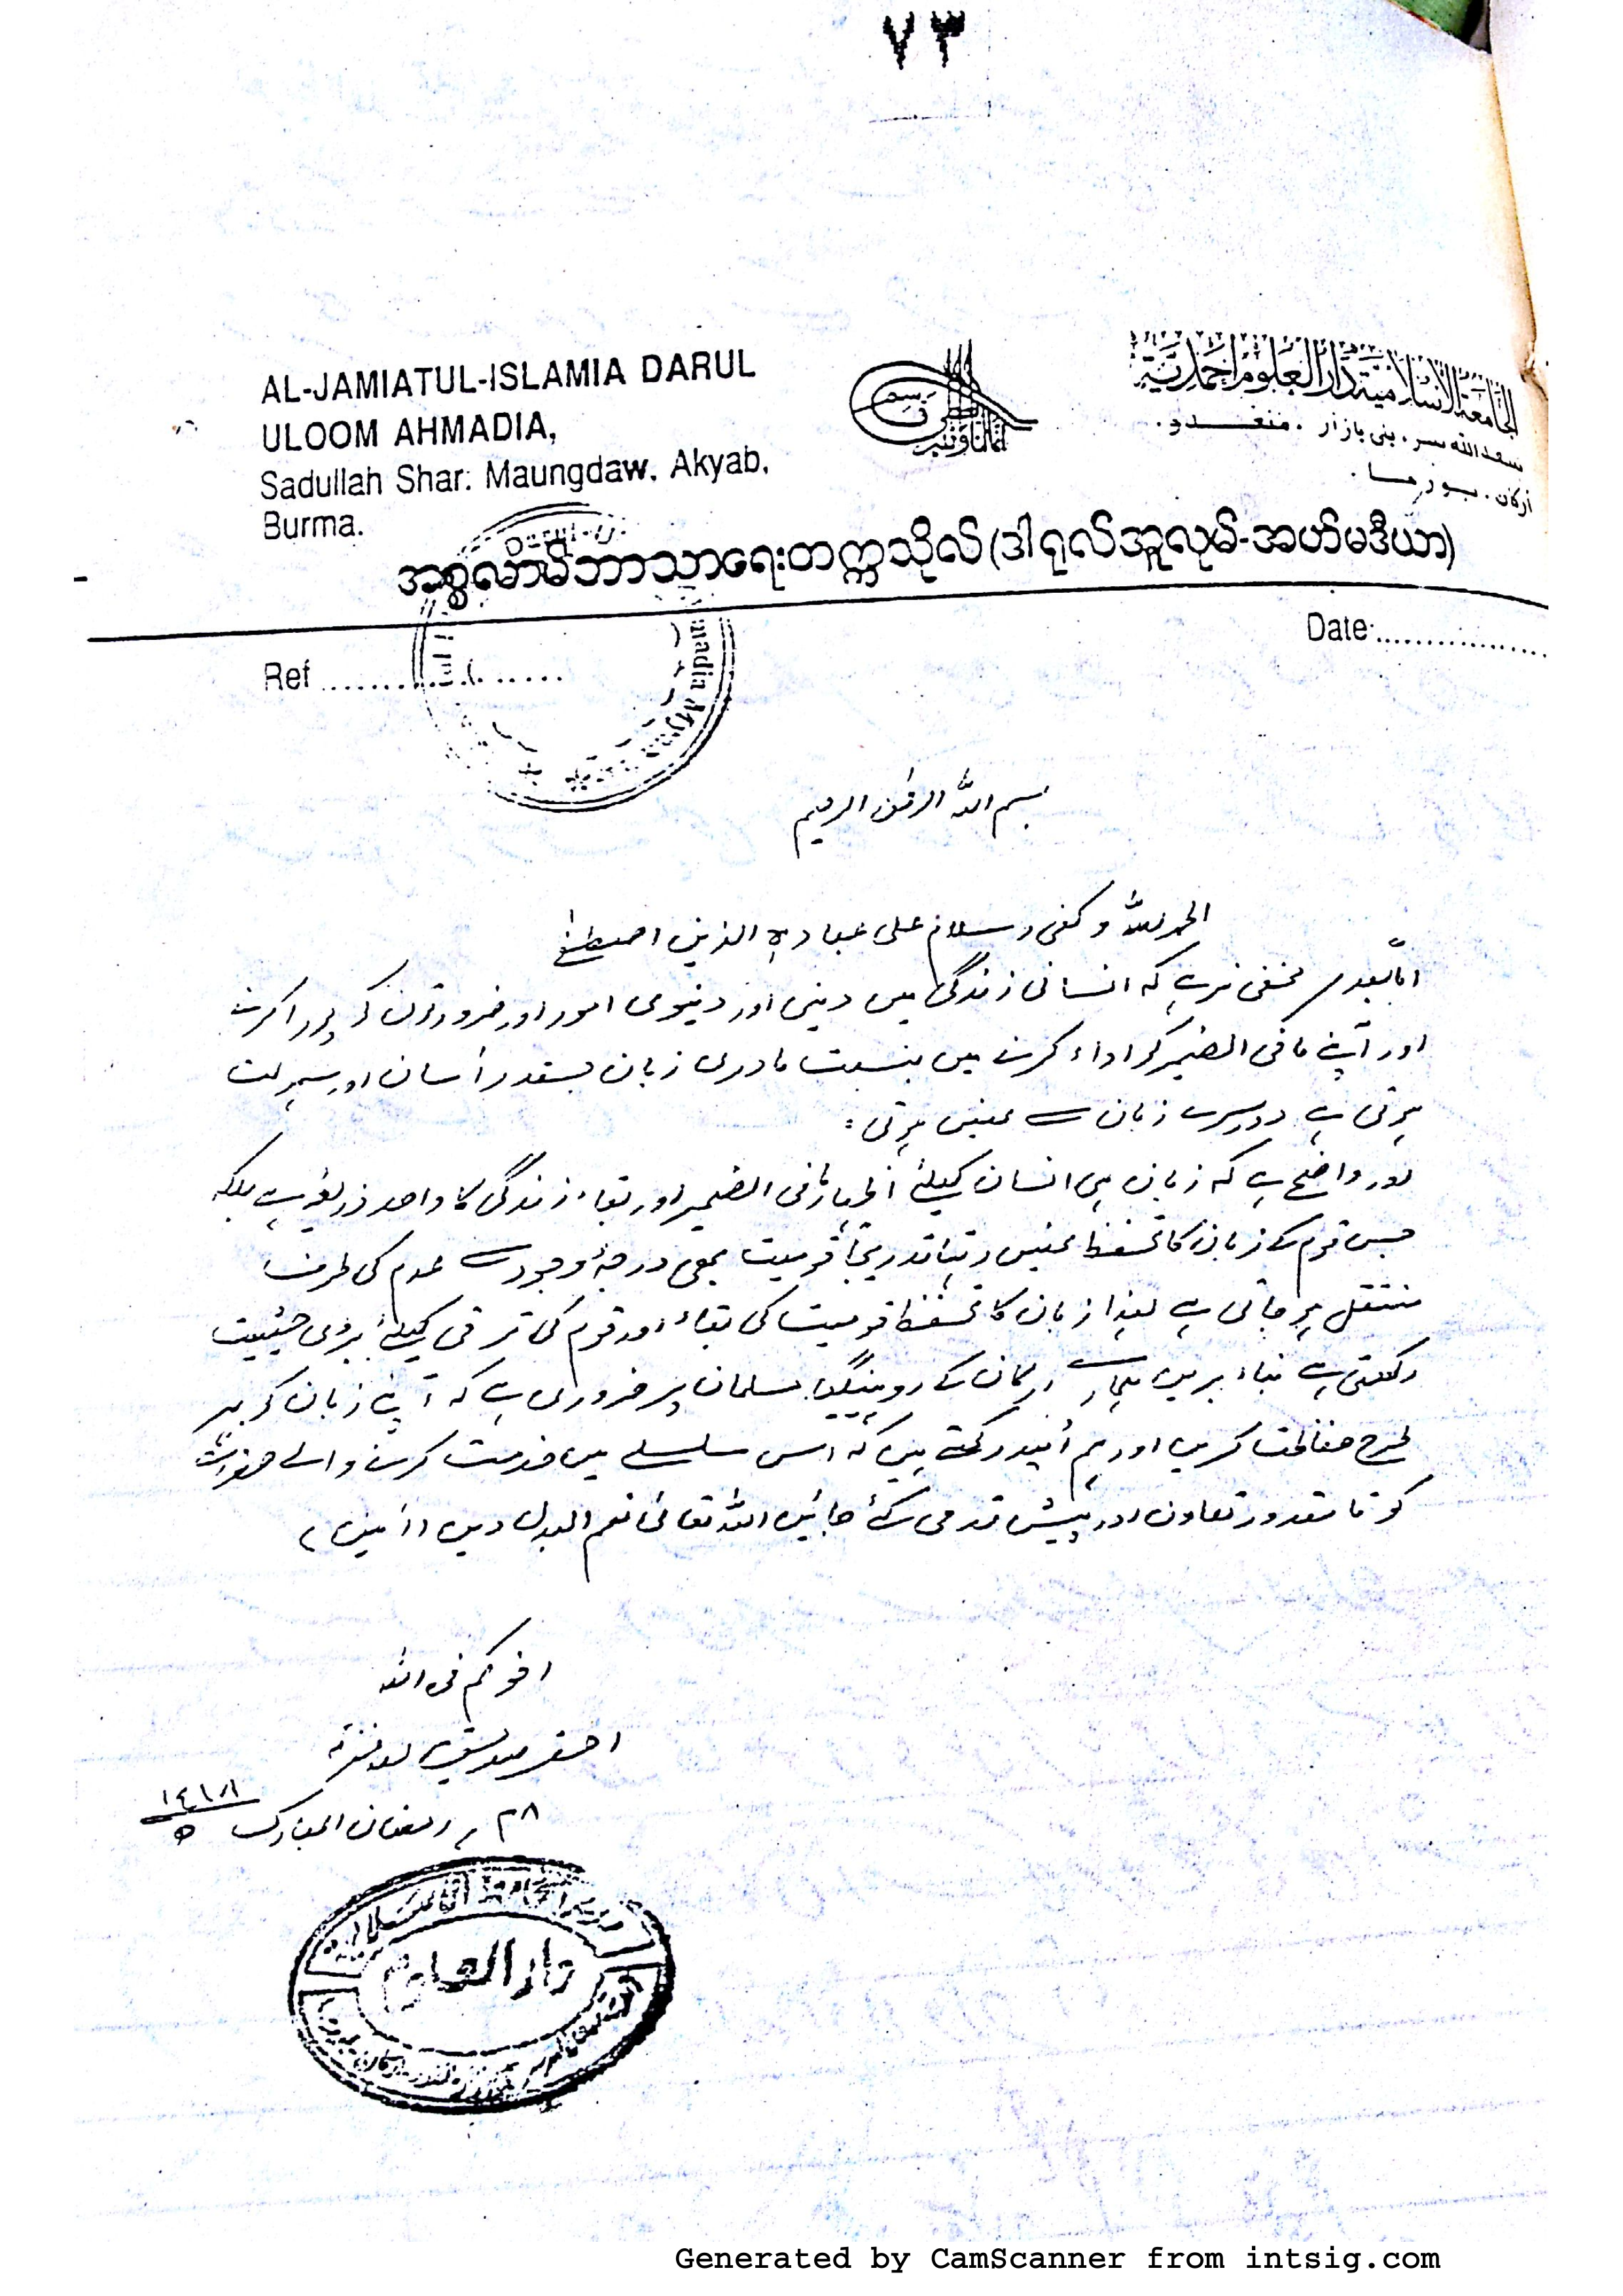 ٧٣
AL-JAMIATUL-ISLAMIA DARUL
ULOOM AHMADIA,
Sadullah Shar: Maungdaw, Akyab,
Burma.
الجامعة الاسلامية دار العلوم احمدية
سعد الله سر ، بنى بازار ، منغدو .
أركان . بورما .
အစ္စလာမ်ဘာသာရေးတက္ကသိုလ်(ဒါရုလ်အူလုမ်-အဟ်မဒီယာ)
Date:.................
Ref ....................
madia Myan
بسم اللہ الرحمن الرحیم
الحمد للہ وکفی وسلام علی عبادہ الذین اصطفی
امّابعد مخفی نرہے کہ انسانی زندگی میں دینی اور دنیوی امور اور ضرورتوں کو پورا کرنے
اور آپنے مافی الضمیر کو اداء کرنے میں بنسبت مادری زبان جسقدر آسان اور سہولت
ہوتی ہے دوسرے زبان سے نہیں ہوتی :
اور واضح ہے کہ زبان ہی انسان کیلئے اظہار مافی الضمیر اور بقاء زندگی کا واحد ذریعہ ہے بلکہ
جس قوم کے زبان کا تحفظ نہیں رہتا تدریجاً قومیت بھی درجۂ وجود سے عدم کی طرف
منتقل ہو جاتی ہے لہٰذا زبان کا تحفظ قومیت کی بقاء اور قوم کی ترقی کیلئے بڑی حیثیت
رکھتی ہے بناء بریں ہمارے ارکان کے روہینگیا مسلمان پر ضروری ہے کہ آپنے زبان کو ہر
طرح حفاظت کریں اور ہم اُمید رکھتے ہیں کہ اس سلسلے میں خدمت کرنے والے حضرات
کو تا مقدور تعاون اور پیش قدمی کئے جائیں اللہ تعالیٰ نعم البدل دیں (آمین)
اخوکم فی اللہ
احقر
٢٨ رمضان المبارک ١٤١٨ ھ
دار العلوم
Generated by CamScanner from intsig.com